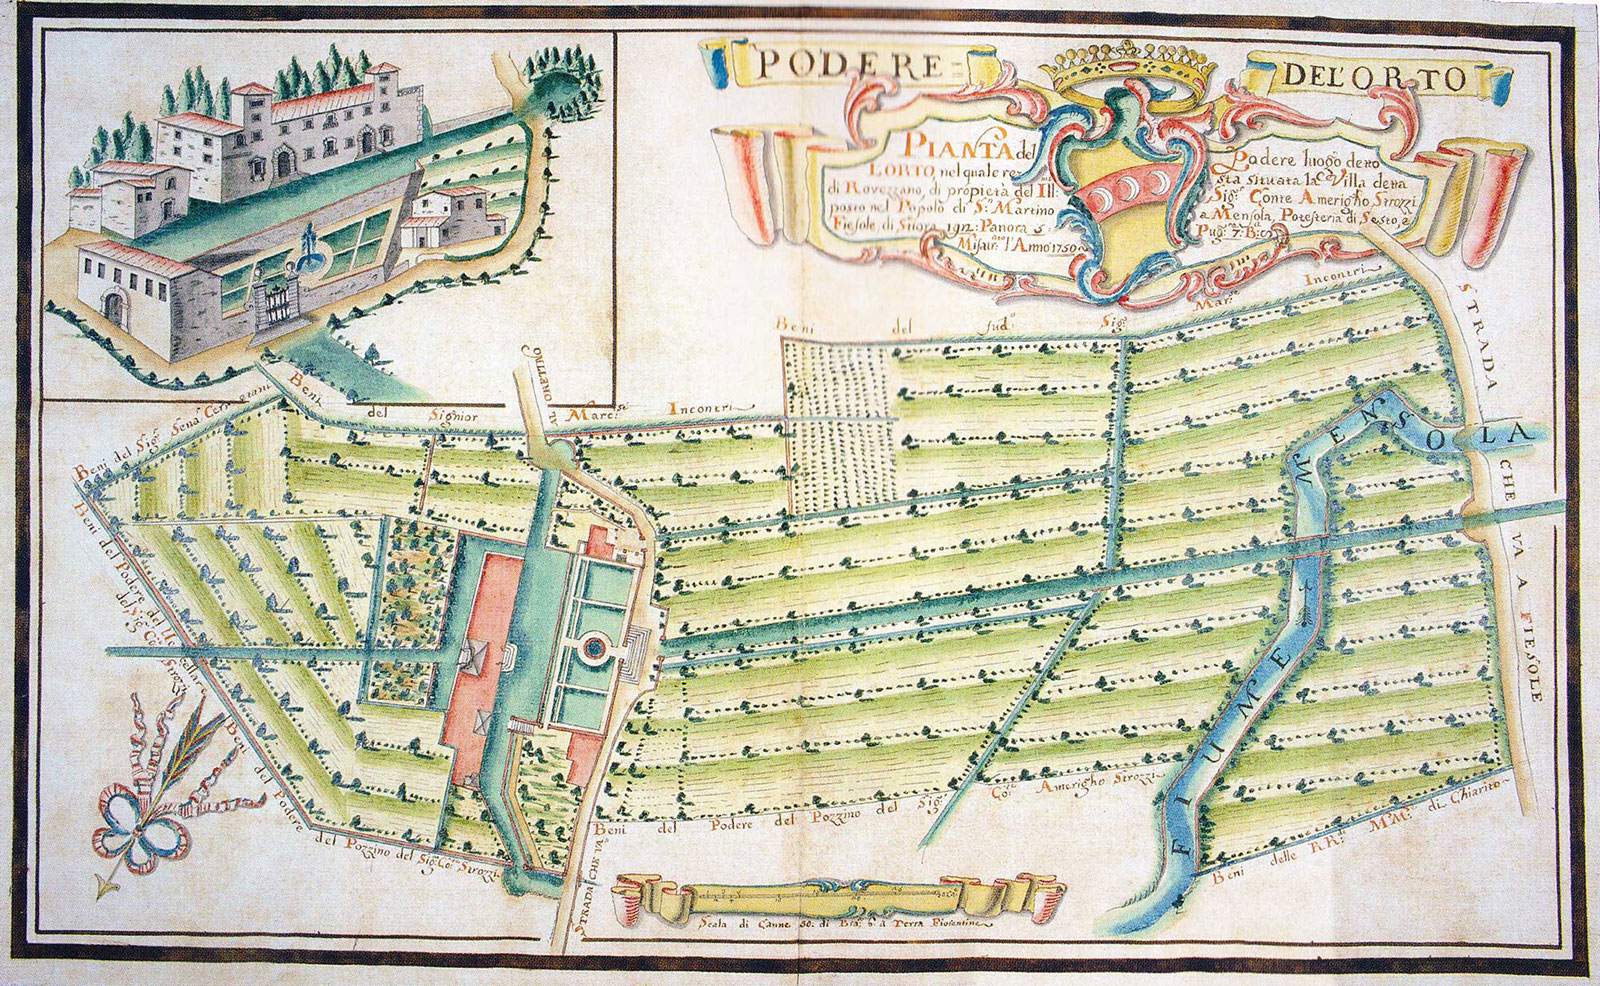 PODERE
DEL'ORTO
PIANTA del Podere luogo detto
LORTO, nel quale re sta situata la Villa detta
di Rovezzano, di propietà del Ill: Sig.e Conte Amerigho Strozzi
posto nel Popolo di S. Martino a Mensola, Potesteria di Sesto, e
Fiesole, di Stiora 192: Panora 5 Pug: 7: B:
Misur: l'Anno 1750
Beni del sud.o Sig.e Mar.se Incontri
STRADA CHE VA A FIESOLE
AL GHETTINO
Beni del Signior Marc.se Incontri
Beni del Sig.e Sena.
Beni del Podere del
del Sig.e Co: Strozzi
FIUME MENSOLA
Beni del Podere del Pozzino del Sig.e Co: Strozzi
Beni del Podere del Pozzino del Sig.e
Co: Amerigho Strozzi
Beni delle RR: MM: di Chiarito
STRADA CHE VA
Scala di Canne 50. di Bra: 6: a Terra Fiorentine